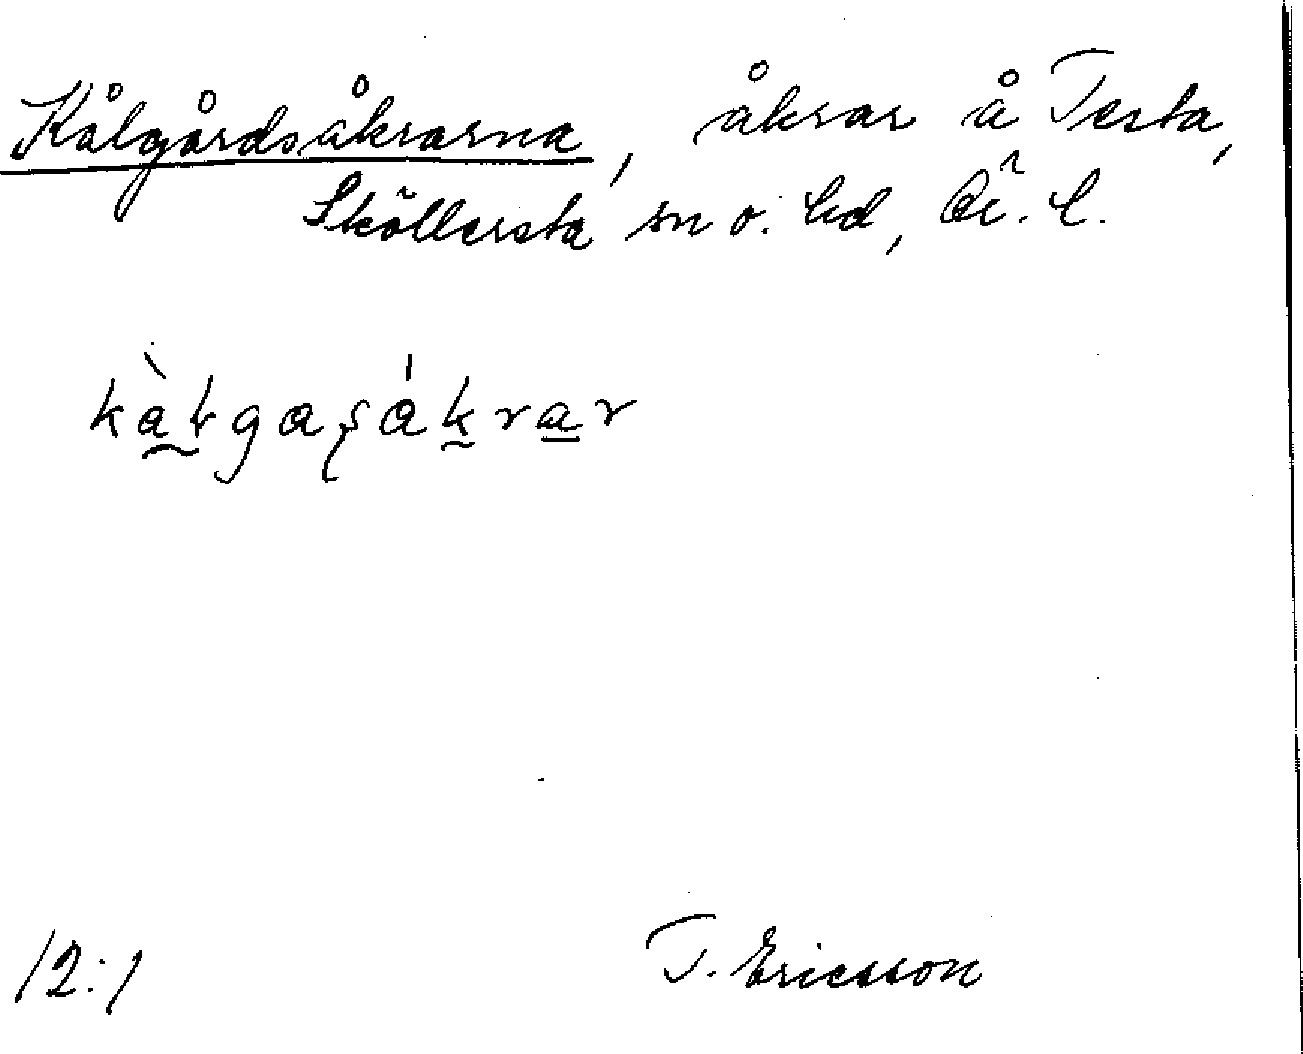 Kålgårdsåkrarna, åkrar å Testa,
Sköllersta sn o. hd, Ör. l.
12:1
T. Ericsson